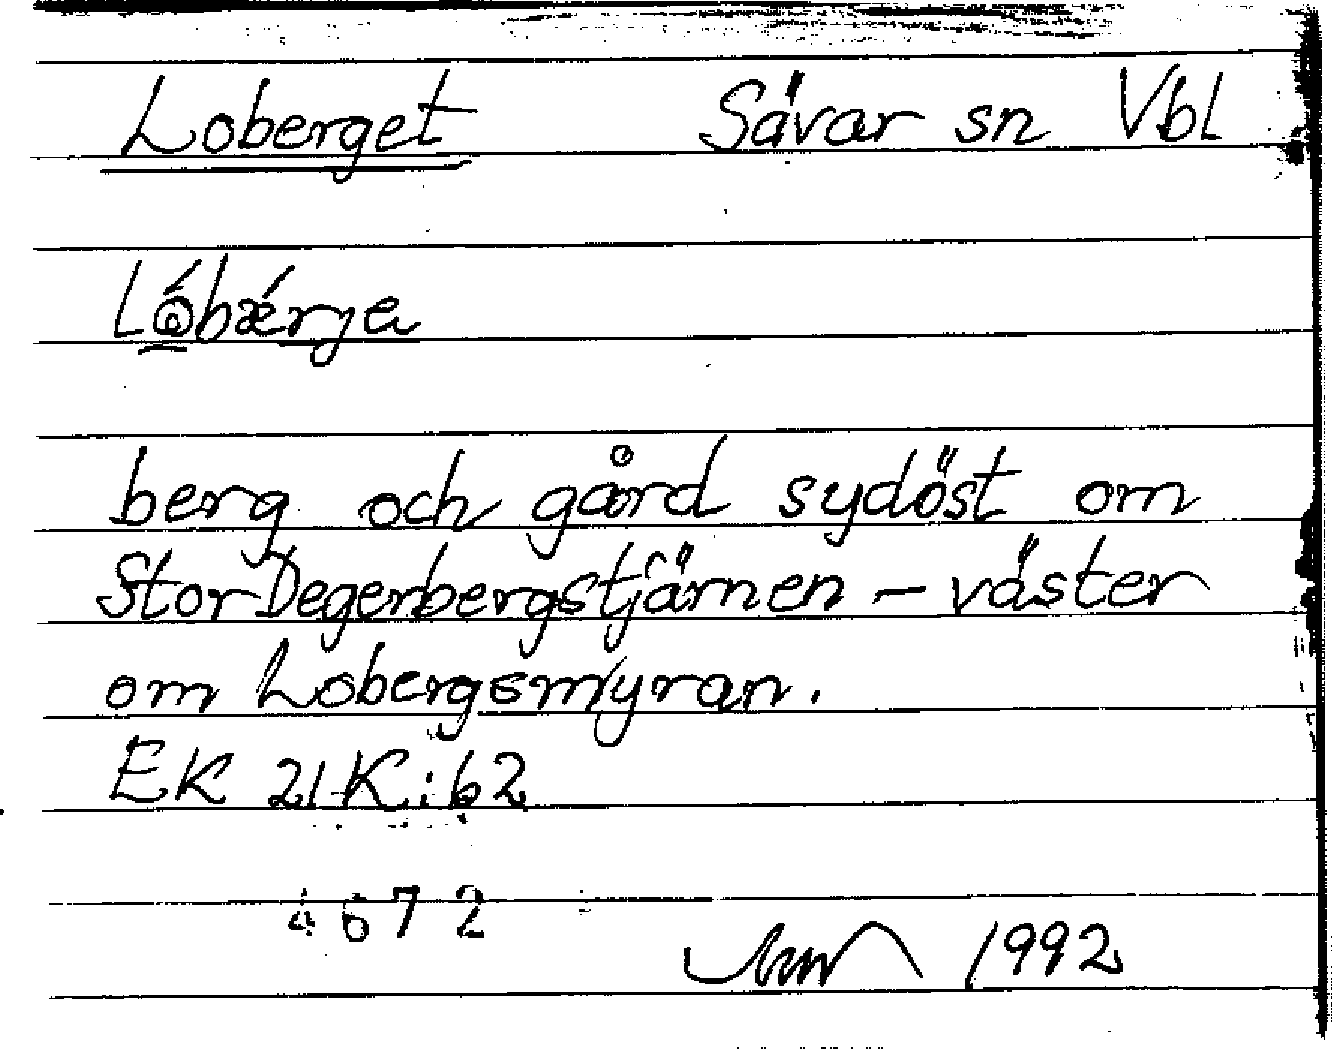 Loberget Sävar sn Vbl
Lǿbǽrja
berg och gård sydöst om
Stor-Degerbergstjärnen – väster
om Lobergsmyran.
EK 21 K:62
4672
1992